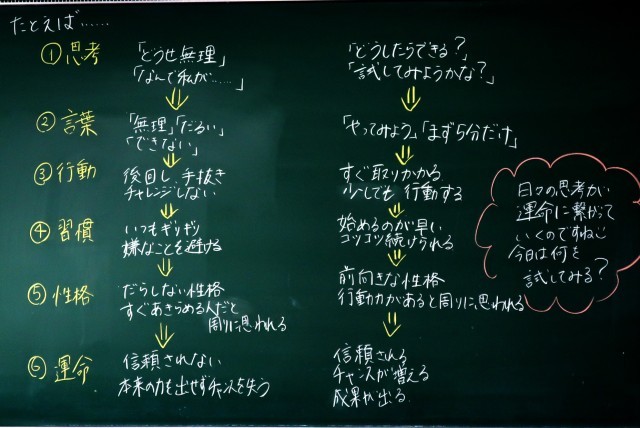 たとえば……
①思考
「どうせ無理」
「なんで私が……」
「どうしたらできる？」
「試してみようかな？」
②言葉
「無理」「だるい」
「できない」
「やってみよう」「まず5分だけ」
③行動
後回し、手抜き
チャレンジしない
すぐ取りかかる
少しでも行動する
④習慣
いつもギリギリ
嫌なことを避ける
始めるのが早い
コツコツ続けられる
⑤性格
だらしない性格
すぐあきらめる人だと
周りに思われる
前向きな性格
行動力があると周りに思われる
⑥運命
信頼されない
本来の力を出せずチャンスを失う
信頼される
チャンスが増える
成果が出る
日々の思考が
運命に繋がって
いくのですね
今日は何を
試してみる？